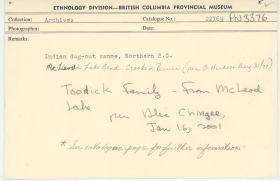 ETHNOLOGY DIVISION—BRITISH COLUMBIA PROVINCIAL MUSEUM
Collection: Archives Catalogue No.: PN3376
Photographer: Date:
Remarks:
Indian dug-out canoe, Northern B.C.
McLeod Lake Band Crooked River
Toodick Family - From McLeod
Lake
per Alec Chingee,
Jan 16, 2001
* See catalogue page for further information